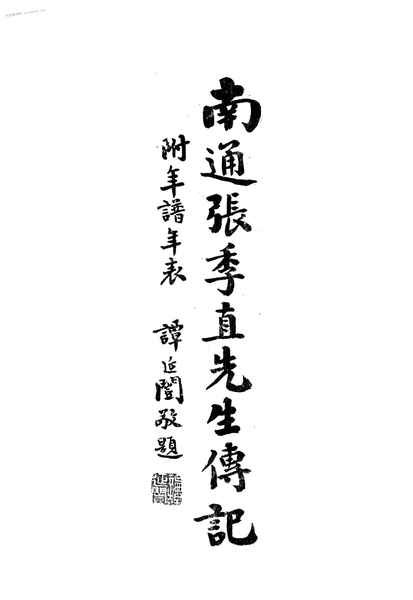 南通張季直先生傳記
附年譜年表　譚延闓敬題